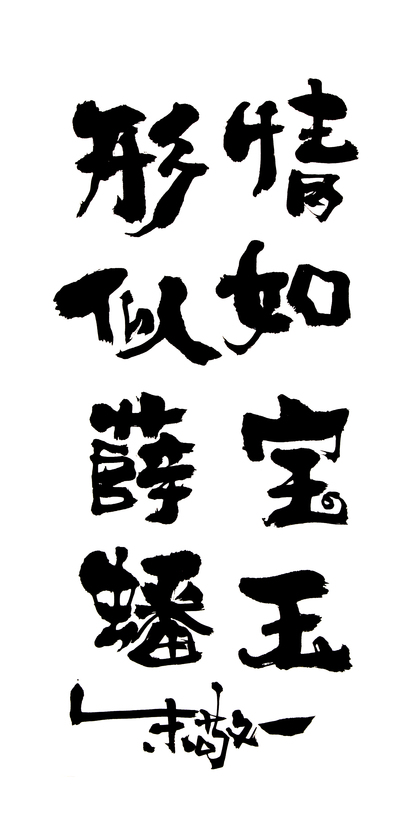 情如宝玉
形似薛蟠
敬一